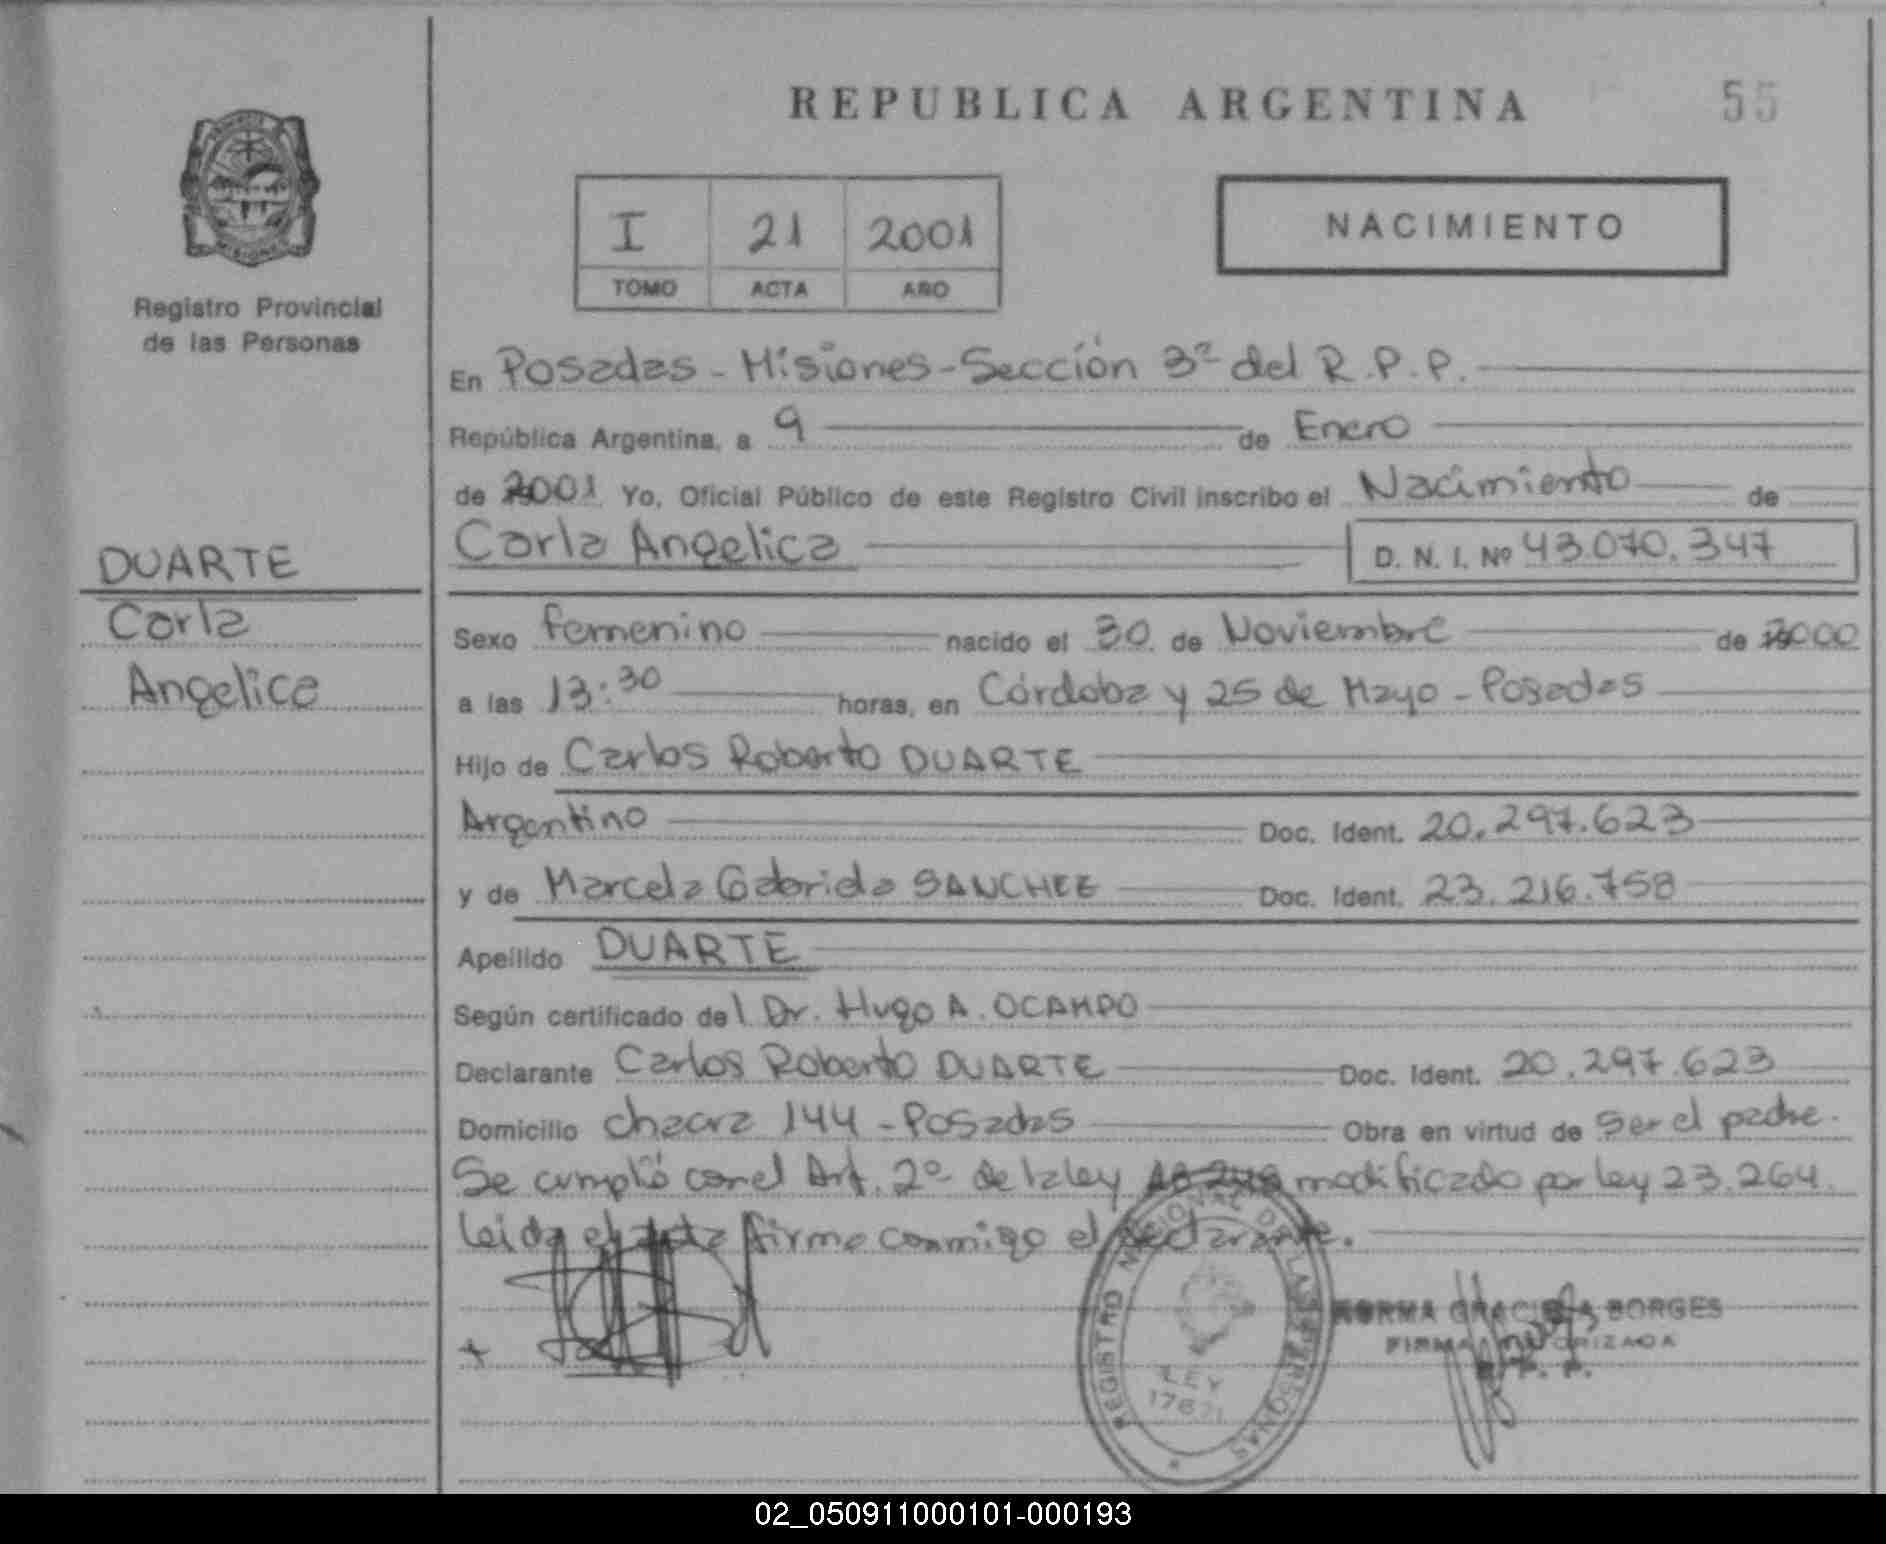 REPUBLICA ARGENTINA
55
I 21 2001
TOMO ACTA AÑO
NACIMIENTO
MISIONES
Registro Provincial
de las Personas
En Posadas - Misiones - Sección 3ª del R.P.P.
República Argentina, a 9 de Enero
de 2001 Yo, Oficial Público de este Registro Civil inscribo el Nacimiento de
Carla Angelica D. N. I. Nº 43.070.347
DUARTE
Carla
Angelica
Sexo femenino nacido el 30 de Noviembre de 2000
a las 13:30 horas, en Córdoba y 25 de Mayo - Posadas
Hijo de Carlos Roberto DUARTE
Argentino Doc. Ident. 20.297.623
y de Marcela Gabriela SANCHEZ Doc. Ident. 23.216.758
Apellido DUARTE
Según certificado del Dr. Hugo A. OCAMPO
Declarante Carlos Roberto DUARTE Doc. Ident. 20.297.623
Domicilio chacra 144 - Posadas Obra en virtud de ser el padre.
Se cumplió con el Art. 2º de la ley modificado por ley 23.264.
Leida el acta firma conmigo el declarante.
REGISTRO NACIONAL DE LAS PERSONAS
LEY
17671
NORMA GRACIELA BORGES
FIRMA AUTORIZADA
02_050911000101-000193